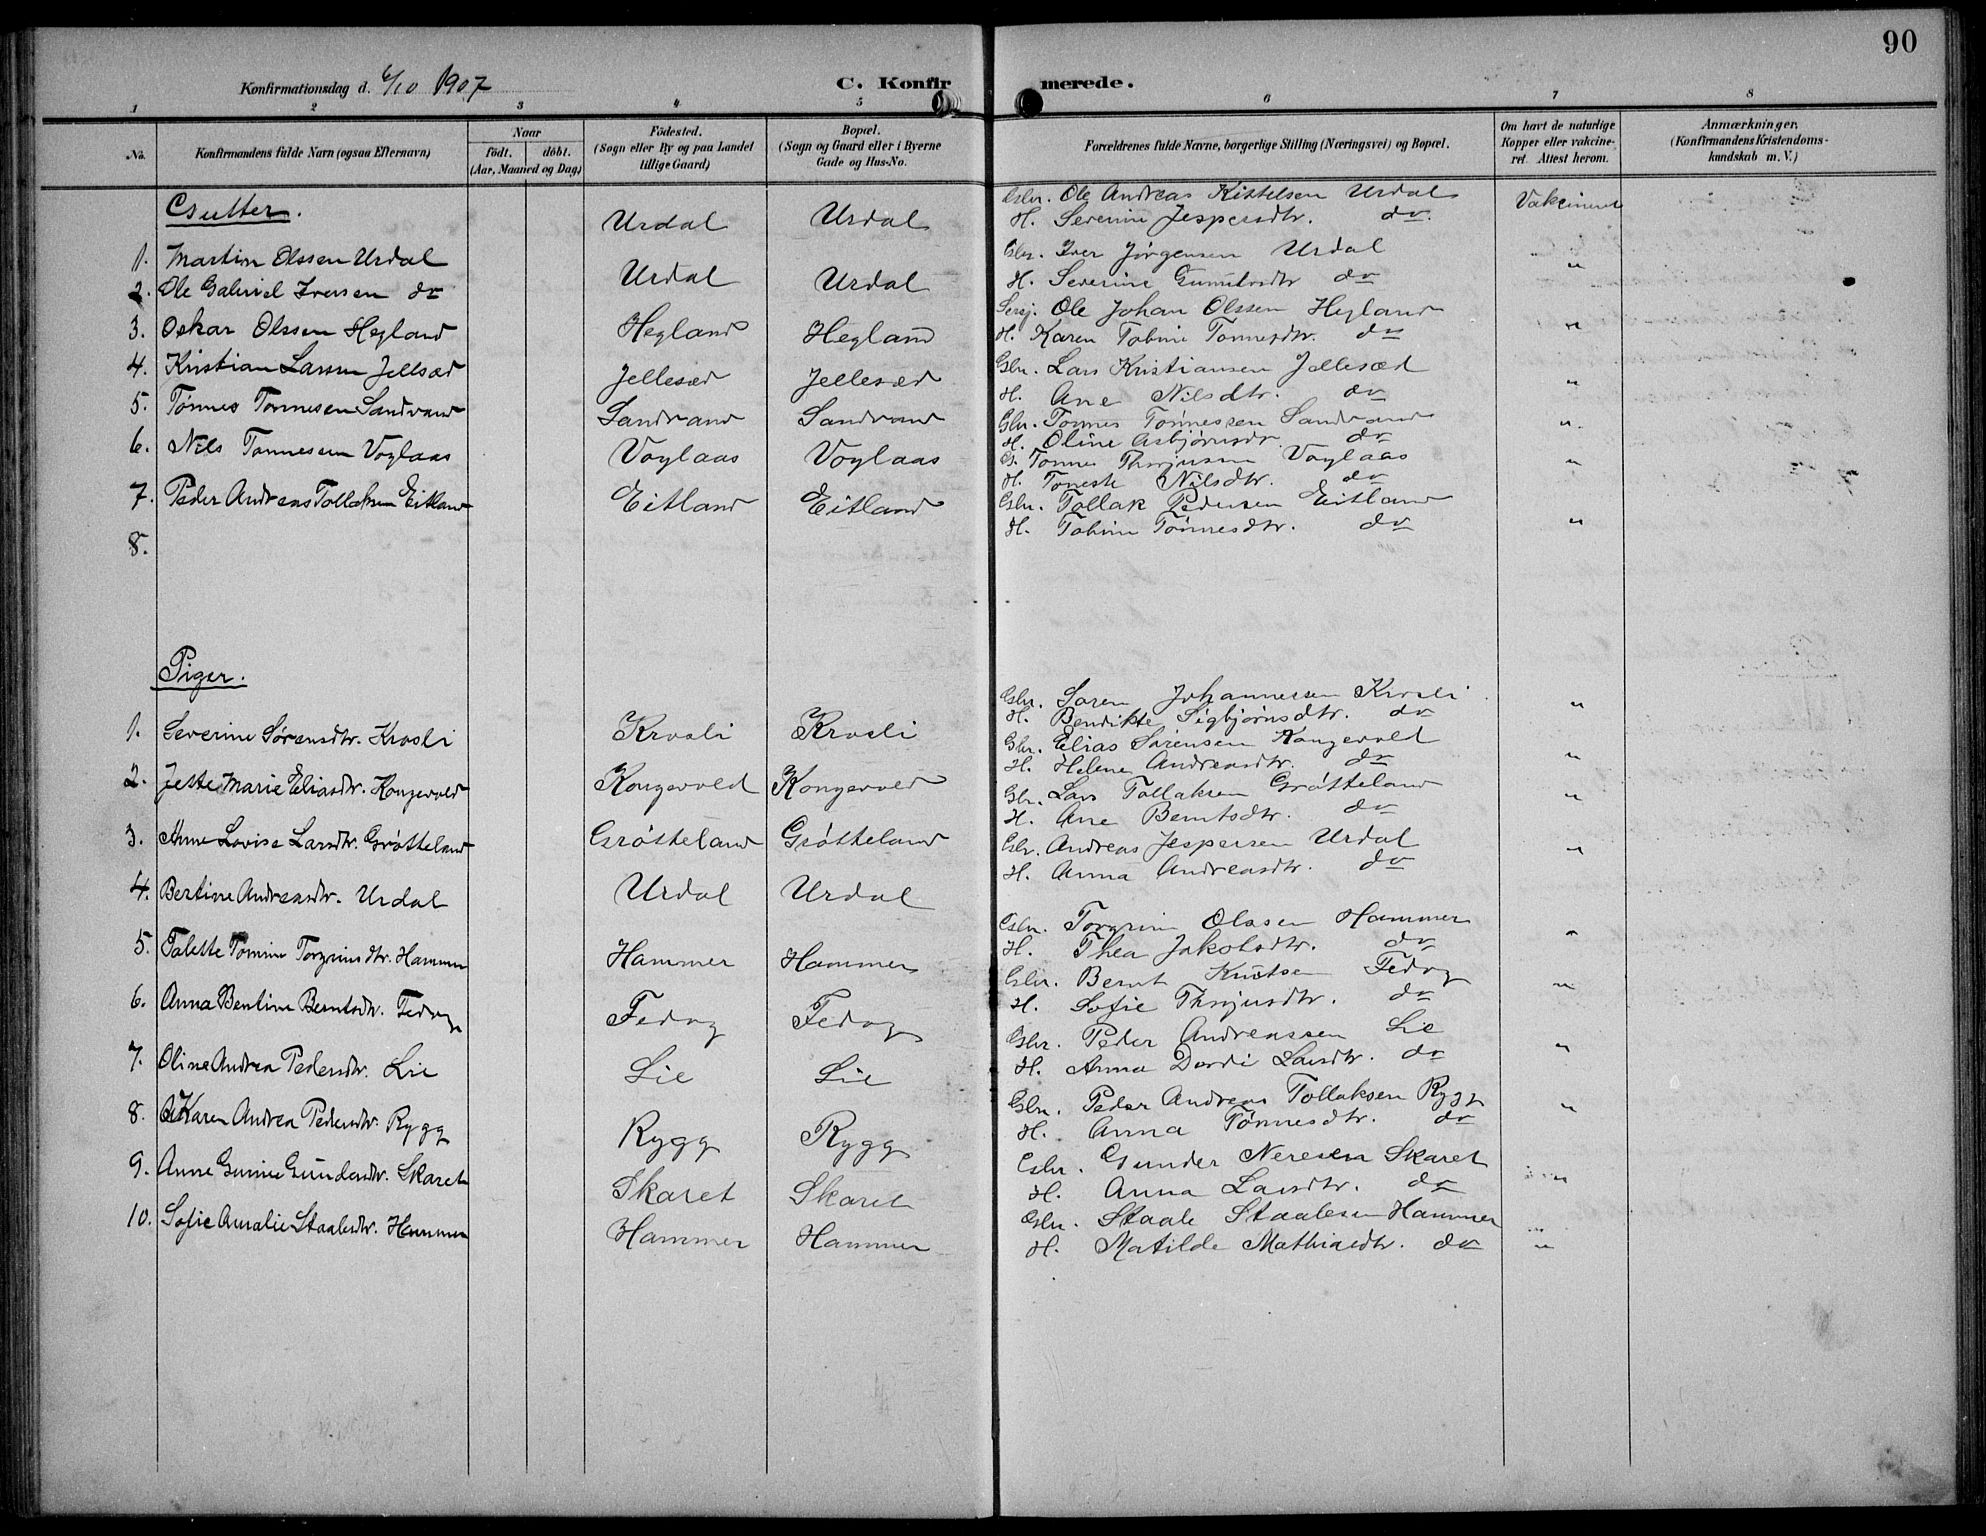 90
Konfirmationsdag d. 6/10 1907
C. Konfirmerede.
1 2 3 4 5 6 7 8
No.
Konfirmandens fulde Navn (ogsaa Efternavn)
Naar
födt. döbt.
(Aar, Maaned og Dag)
Födested.
(Sogn eller By og paa Landet
tillige Gaard)
Bopæl.
(Sogn og Gaard eller i Byerne
Gade og Hus-No.
Forældrenes fulde Navne, borgerlige Stilling (Næringsvei) og Bopæl.
Om havt de naturlige
Kopper eller vakcine-
ret. Attest herom.
Anmærkninger.
(Konfirmandens Kristendoms-
kundskab m. V.)
Gutter.
1. Martin Olssen Urdal Urdal Urdal
Gbr. Ole Andreas Kittelsen Urdal Vakcineret
H. Severine Jespersdtr. do
2. Ole Gabriel Iversen do Urdal Urdal
Gbr. Iver Jørgensen Urdal "
H. Severine Gunuldsdtr do
3. Oskar Olssen Hegland Hegland Hegland
Ole Johan Olssen Hegland "
H. Karen Tobine Tonnesdtr. do
4. Kristian Larsen Jellsæd Jellesæd Jellesæd
Gbr. Lars Kristiansen Jellesæd "
H. Ane Nilsdtr. do
5. Tønnes Tonnesen Sandvand Sandvand Sandvand
Gbr. Tonnes Tønnessen Sandvand "
H. Oline Asbjørnsdr do
6. Nils Tonnessen Voglaas Voglaas Voglaas
G. Tonnes Thorjussen Voglaas "
H. Toneste Nilsdtr. do
7. Peder Andreas Tollaksen Eitland Eitland Eitland
Gbr. Tollak Pedersen Eitland "
H. Tobine Tønnesdtr. do
8.
Piger.
1. Severine Sørensdtr. Krosli Krosli Krosli
Gbr. Soren Johannessen Krosli "
H. Bendikte Sigbjørnsdtr. do
2. Jette Marie Eliasdtr. Kongevold Kongevold Kongevold
Gbr. Elias Sørensen Kongevold "
H. Helene Andreasdtr. do
3. Anne Lovise Larsdtr. Grøtteland Grøtteland Grøtteland
Gbr. Lars Tollaksen Grøtteland "
H. Ane Berntsdtr. do
4. Bertine Andreasdtr. Urdal Urdal Urdal
Gbr. Andreas Jespersen Urdal "
H. Anna Andreasdtr. do
5. Talette Tomine Torgrimsdtr. Hammer Hammer Hammer
Gbr. Torgrim Olssen Hammer "
H. Thea Jakobsdtr. do
6. Anna Bentine Berntsdtr. Fedog Fedog Fedog
Gbr. Bernt Knutsen Fedog "
H. Sofie Thorjusdtr. do
7. Oline Andrea Pedersdtr. Lie Lie Lie
Gbr. Peder Andreassen Lie "
H. Anna Dordi Larsdtr. do
8. Karen Andrea Pedersdtr. Rygg Rygg Rygg
Gbr. Peder Andreas Tollaksen Rygg "
H. Anna Tønnesdtr. do
9. Anne Gunder­sdtr. Skaret Skaret Skaret
Gbr. Gunder Neresen Skaret "
H. Anna Larsdtr. do
10. Sofie Amalie Staalesdtr. Hammer Hammer Hammer
Gbr. Staale Staalesen Hammer "
H. Matilde Mathiasdtr. do